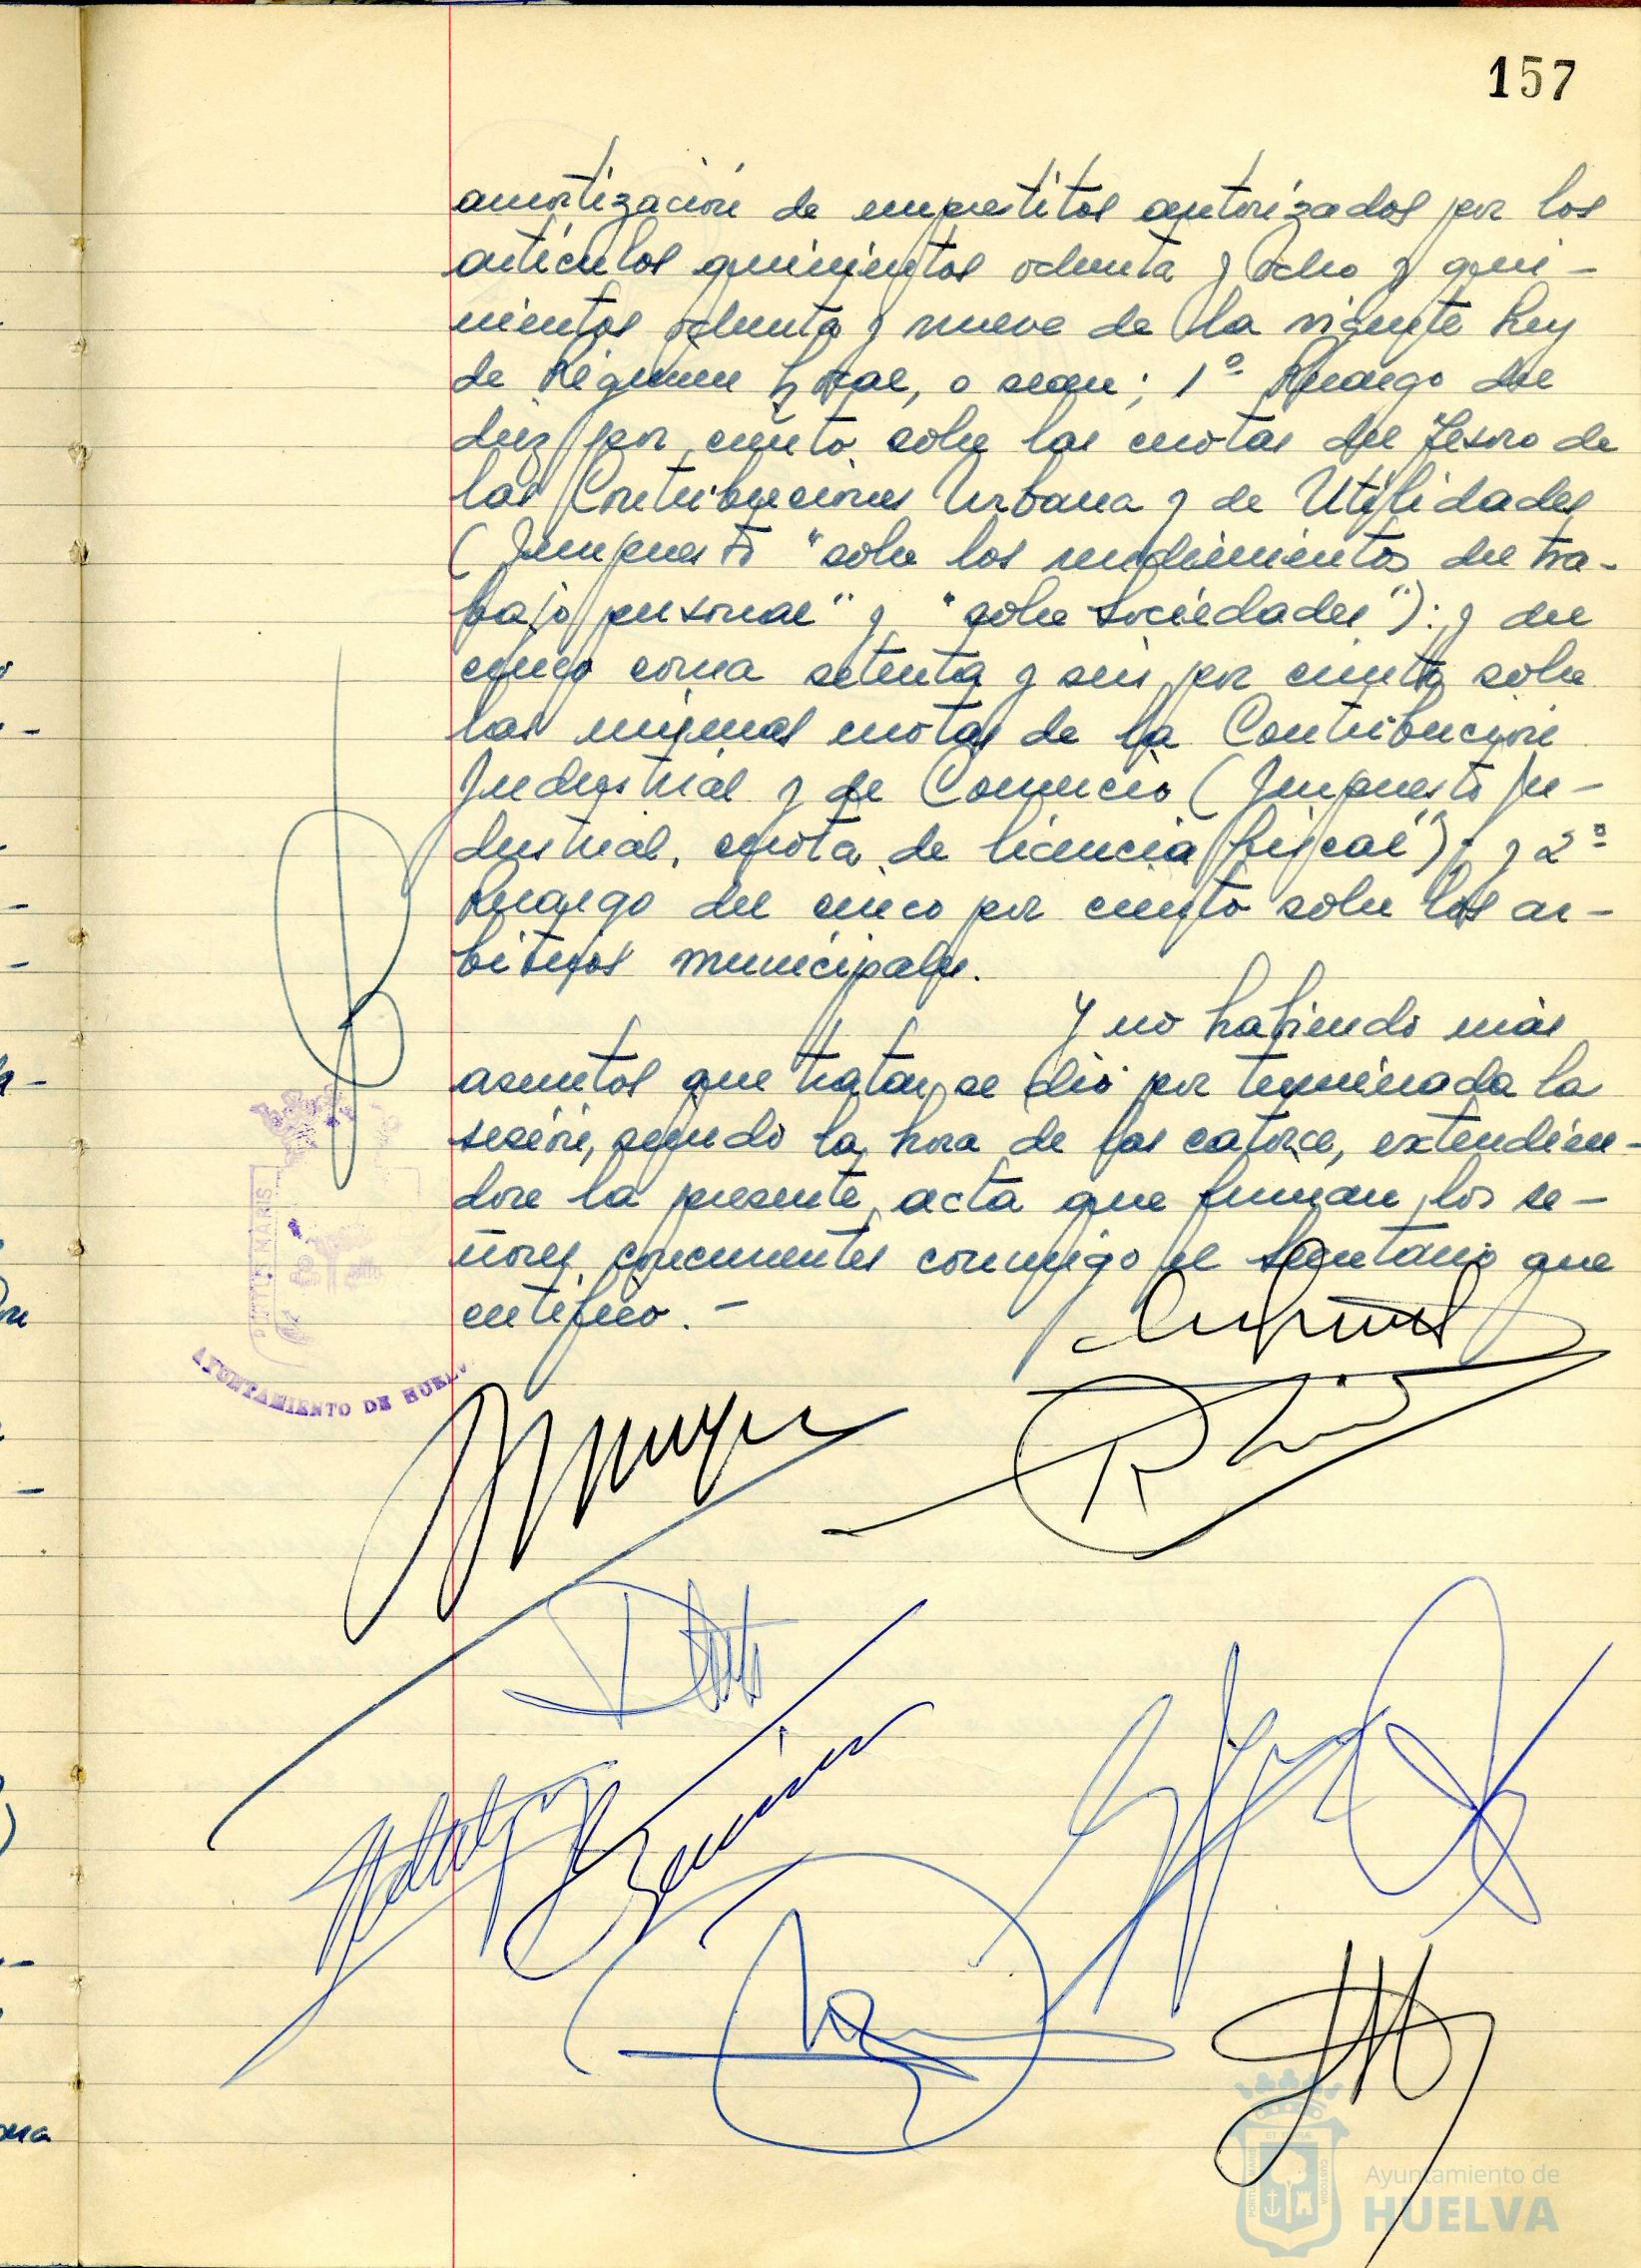 157
amortización de emprestitos autorizados por los
articulos quinientos ochenta y ocho y qui-
nientos ochenta y nueve de la vigente Ley
de Régimen Local, o sean; 1º Recargo del
diez por ciento sobre las cuotas del Tesoro de
las Contribuciones Urbana y de Utilidades
(Impuesto "sobre los rendimientos del tra-
bajo personal" y "sobre Sociedades"): y del
cinco coma setenta y seis por ciento sobre
las mismas cuotas de la Contribución
Industrial y de Comercio (Impuesto In-
dustrial, cuota de licencia fiscal"); y 2º
Recargo del cinco por ciento sobre los ar-
bitrios municipales.
Y no habiendo más
asuntos que tratar, se dió por terminada la
sesión, siendo la hora de las catorce, extendien-
dose la presente acta que firman los se-
ñores concurrentes conmigo el Secretario que
certifico. -
PORTUS MARIS
AYUNTAMIENTO DE HUELV
Ayuntamiento de
HUELVA